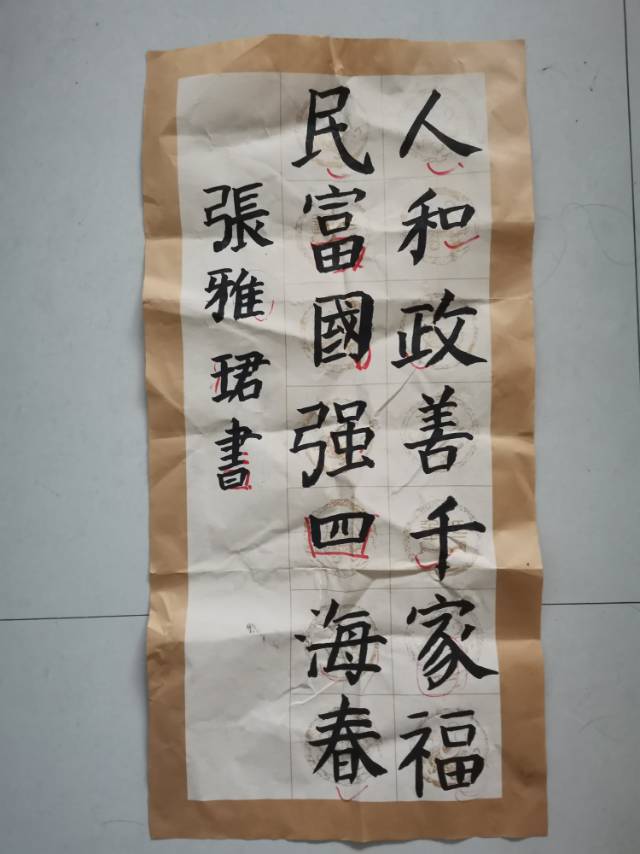 人和政善千家福
民富國强四海春
張雅珺書